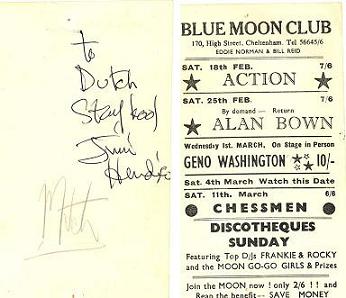 to
Dutch
Stay kool
Jimi
Hendrix
Mitch
BLUE MOON CLUB
170, High Street, Cheltenham. Tel 56645/6
EDDIE NORMAN & BILL REID
SAT. 18th FEB. 7/6
ACTION
SAT. 25th FEB. 7/6
By demand — Return
ALAN BOWN
Wednesday 1st. MARCH, On Stage in Person
GENO WASHINGTON 10/-
SAT. 4th March Watch this Date
SAT. 11th. March 6/6
CHESSMEN
DISCOTHEQUES
SUNDAY
Featuring Top DJs FRANKIE & ROCKY
and the MOON GO-GO GIRLS & Prizes
Join the MOON now ! only 2/6 !! and
Reap the benefit— SAVE MONEY